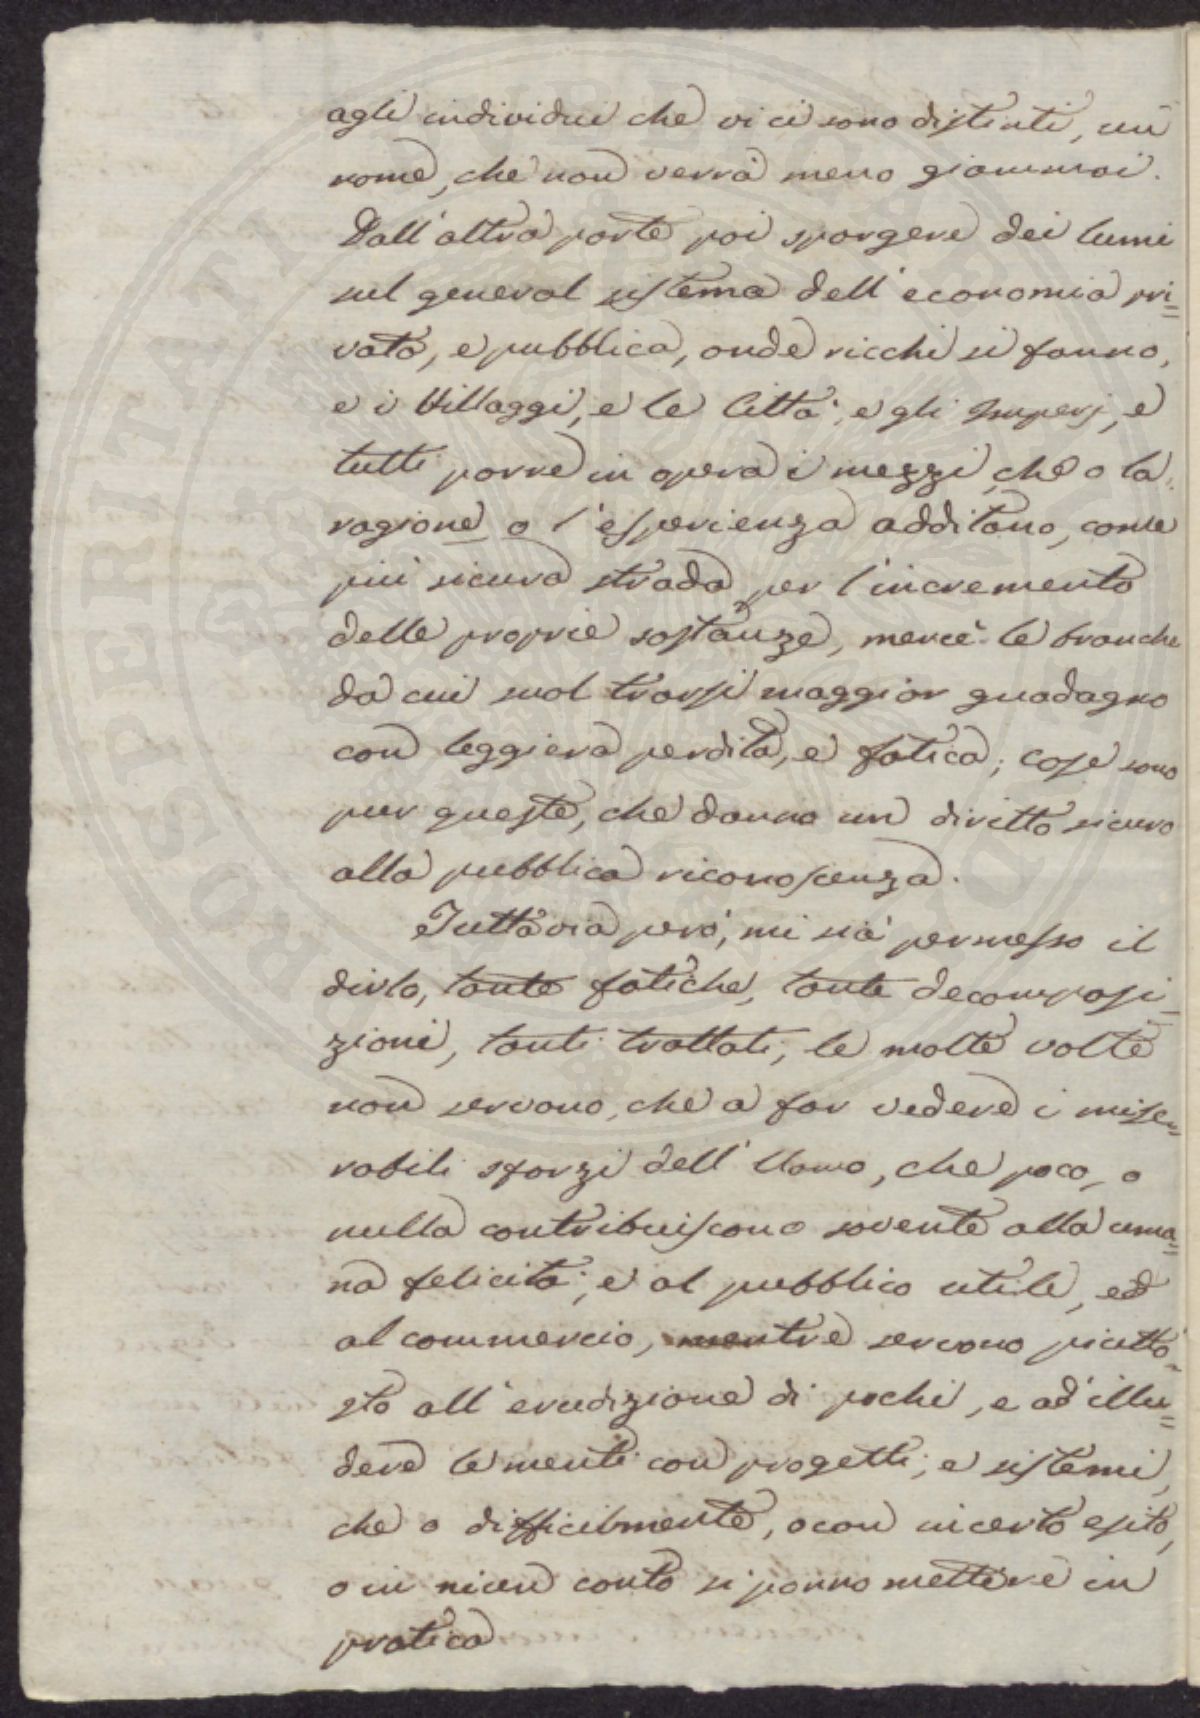 agli individui che vi ci sono distinti, un
nome, che non verrà meno giammai.
Dall'altra parte poi spargere dei lumi
sul general sistema dell'economia pri=
vata, e pubblica, onde ricchi si fanno,
e i Villaggi, e le Città, e gli Imperj, e
tutti porre in opera i mezzi, che o la
ragione o l'esperienza additano, come
più sicura strada per l'incremento
delle proprie sostanze, mercè le branche
da cui suol trarsi maggior guadagno
con leggiera perdita, e fatica; cose sono
pur queste, che danno un diritto sicuro
alla pubblica riconoscenza.
Tuttavia però, mi sia permesso il
dirlo, tante fatiche, tante decomposi=
zioni, tanti trattati, le molte volte
non servono, che a far vedere i mise=
rabili sforzi dell'Uomo, che poco, o
nulla contribuiscono sovente alla uma=
na felicità, e al pubblico utile, ed
al commercio, mentre servono piutto=
sto all'erudizione di pochi, e ad illu=
dere le menti con progetti, e sistemi,
che o difficilmente, o con incerto esito,
o in niun conto si ponno mettere in
pratica
PROSPERITATI PUBLICAE